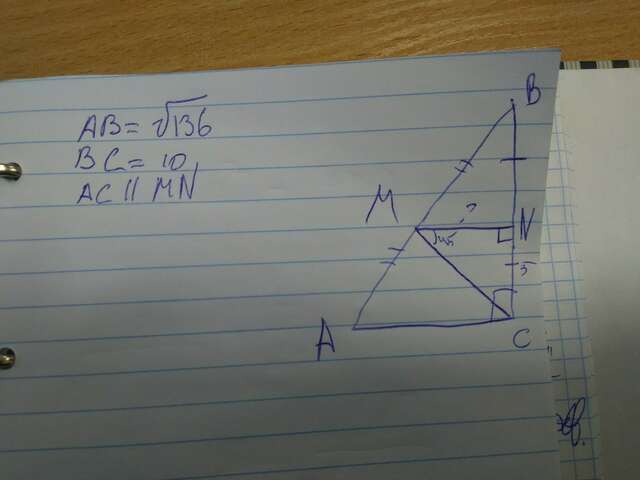 AB = √136
BC = 10
AC || MN
B
M
?
N
45
5
A
C